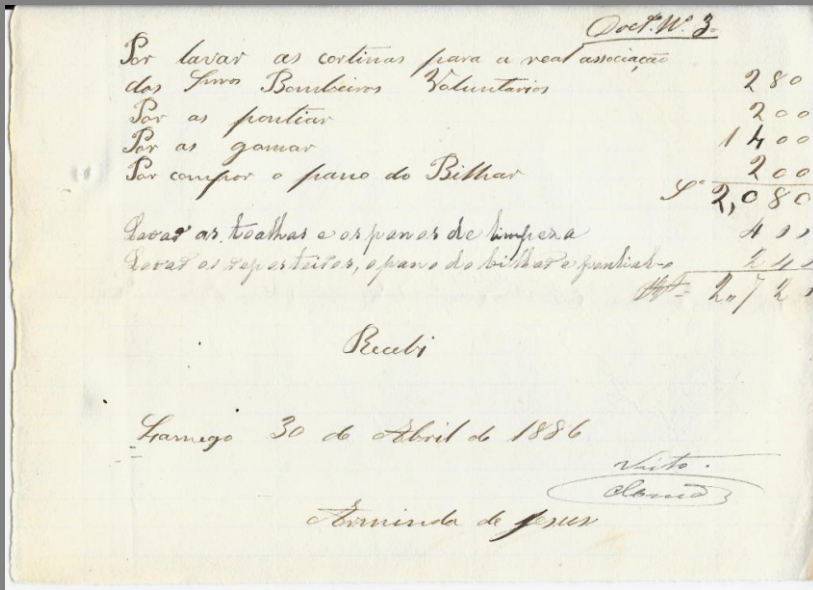 Doct. Nº 3.
Por lavar as cortinas para a real associação
dos Bombeiros Voluntarios 280
Por as pontiar 200
Por as gomar 1400
Por compor o pano do Bilhar 200
2,080
Lavar as toalhas e os panos de limpeza 400
Lavar os reposteiros, o pano do bilhar e pontial-o 240
2.720
Recebi
Lamego 30 de Abril de 1886
Visto.
Arminda de Jesus